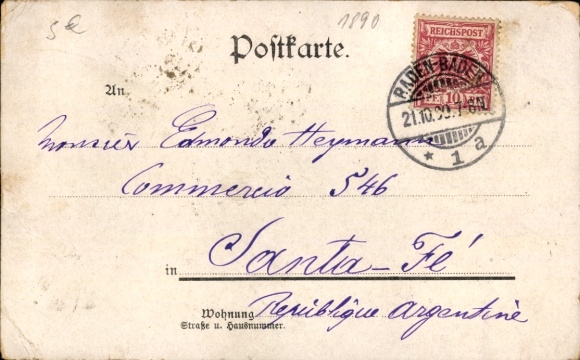 5 €
1890
Postkarte.
REICHSPOST
BADEN-BADEN
21.10.99.7-8N.
* 1 a
An
Monsieur Edmondo Heymann
Commercio 546
in Santa-Fé
Wohnung République Argentine
Straße u. Hausnummer.